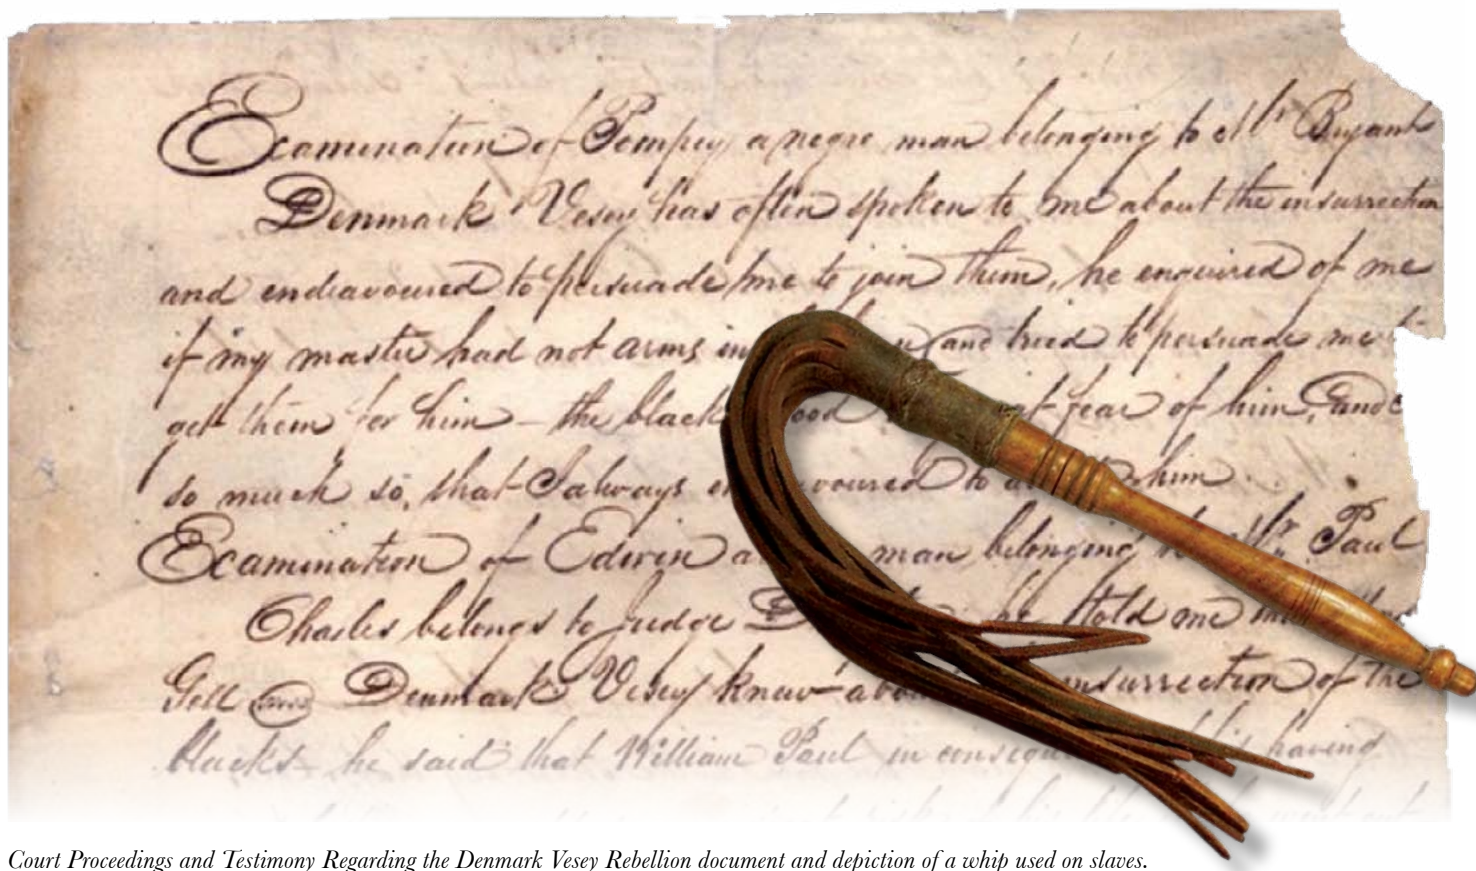 Examination of Pompey a negro man belonging to Mr Bryant
Denmark Vesey has often spoken to me about the insurrection
and endeavoured to persuade me to join them, he enquired of me
if my master had not arms in and tried to persuade me t
get them for him – the blacks stood fear of him, and I
so much so, that I always endeavoured to him.
Examination of Edwin a man belonging to Mr. Paul
Charles belongs to Judge D he told me
Gell and Denmark Vesey knew about insurrection of the
blacks – he said that William Paul in having
Court Proceedings and Testimony Regarding the Denmark Vesey Rebellion document and depiction of a whip used on slaves.